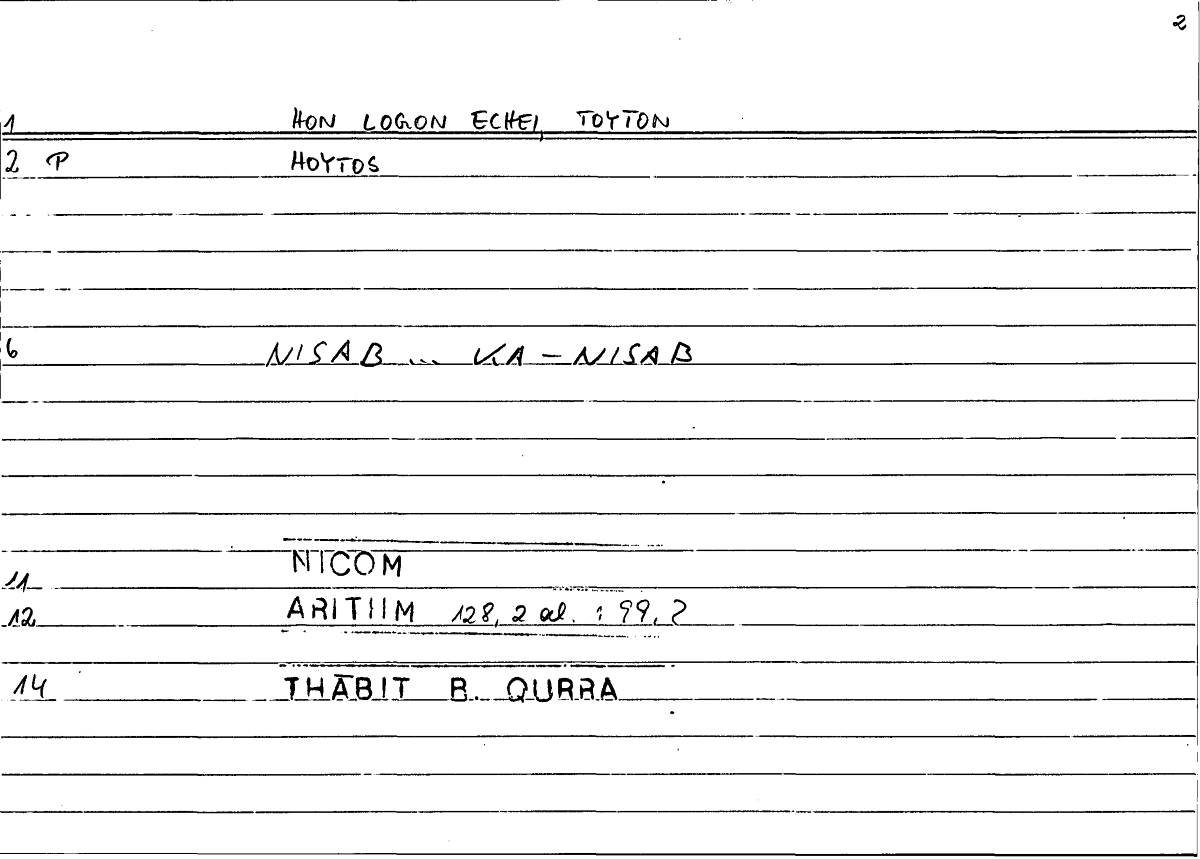 2
1 HON LOGON ECHEI, TOYTON
2 P HOYTOS
6 NISAB ... KA - NISAB
11 NICOM
12 ARITHM 128, 2 al. : 99, 2
14 THĀBIT B. QURRA